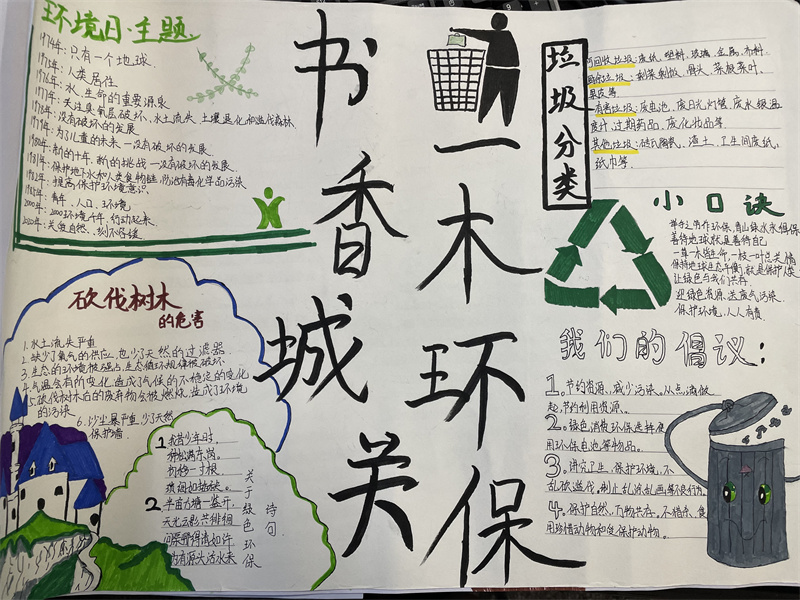 环境日·主题
1974年：只有一个地球
1975年：人类居住
1976年：水，生命的重要源泉
1977年：关注臭氧层破坏、水土流失、土壤退化和滥伐森林
1978年：没有破坏的发展
1979年：为了儿童的未来—没有破坏的发展
1980年：新的十年，新的挑战—没有破坏的发展
1981年：保护地下水和人类食物链，防治有毒化学品污染
1982年：提高保护环境意识
青年、人口、环境
2000年：2000环境千年，行动起来
关爱自然，刻不容缓
砍伐树木
的危害
1.水土流失严重
2.缺少了氧气的供应，也少了天然的过滤器
3.生态的环境被强占，生态循环规律被破坏
4.气温会有所变化，造成了气候的不稳定的变化
5.砍伐树木后的废弃物会被燃烧，造成了环境
的污染
6.沙尘暴严重，少了天然
保护墙
1
2
半亩方塘一鉴开，
天光云影共徘徊
问渠那得清如许
为有源头活水来
关于绿色环保
诗句
书香城关
一木环保
垃圾分类
可回收垃圾：废纸、塑料、玻璃、金属、布料
厨余垃圾：剩菜剩饭、骨头、菜根菜叶、
果皮等
有害垃圾：废电池、废日光灯管、废水银温
度计、过期药品、废化妆品等
其他垃圾：砖瓦陶瓷、渣土、卫生间废纸、
纸巾等
小口诀
举手之劳作环保，青山绿水永相保
善待地球就是善待自己
一草一木皆生命，一枝一叶总关情
保持地球生态平衡，就是保护人类
让绿色与我们共存
迎绿色资源，送废气污染
保护环境，人人有责
我们的倡议：
1.节约资源，减少污染。从点滴做
起，节约利用资源。
2.绿色消费，环保选择使
用环保电池等物品。
3.讲究卫生，保护环境，不
乱砍滥伐，制止乱泼乱画等不良行为。
4.保护自然，万物共存，不猎杀、食
用珍惜动物和受保护动物。